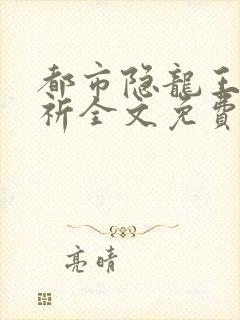 都市隐龍王
祈全文免費
亮晴